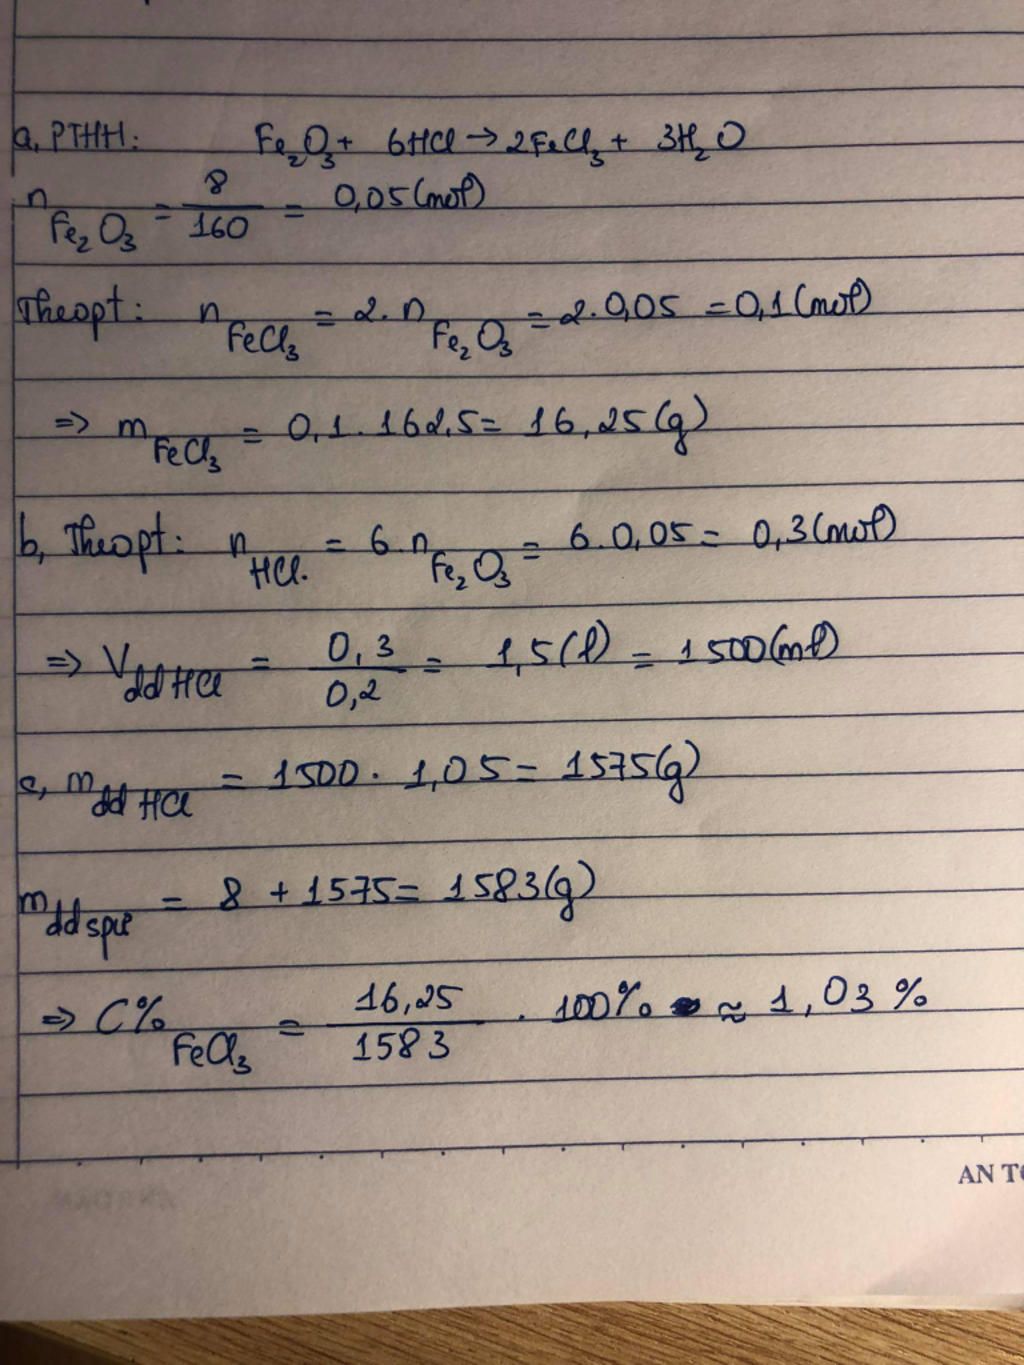 a, PTHH: Fe₂O₃ + 6HCl → 2FeCl₃ + 3H₂O
n Fe₂O₃ = 8/160 = 0,05 (mol)
Theo pt: n FeCl₃ = 2. n Fe₂O₃ = 2. 0,05 = 0,1 (mol)
=> m FeCl₃ = 0,1. 162,5 = 16,25 (g)
b, Theo pt: n HCl. = 6. n Fe₂O₃ = 6. 0,05 = 0,3 (mol)
=> V dd HCl = 0,3/0,2 = 1,5 (l) = 1500 (ml)
c, m dd HCl = 1500 . 1,05 = 1575 (g)
m dd spư = 8 + 1575 = 1583 (g)
=> C% FeCl₃ = 16,25/1583 . 100% ≈ 1,03 %